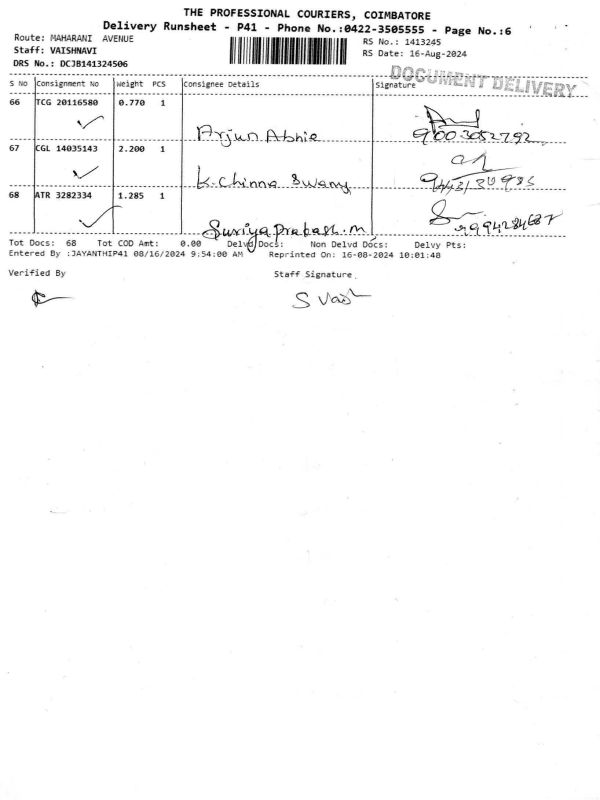 THE PROFESSIONAL COURIERS, COIMBATORE
Delivery Runsheet - P41 - Phone No.:0422-3505555 - Page No.:6
Route: MAHARANI AVENUE
RS No.: 1413245
Staff: VAISHNAVI
RS Date: 16-Aug-2024
DRS No.: DCJB141324506
DOCUMENT DELIVERY
S No Consignment No Weight PCS Consignee Details Signature
66 TCG 20116580 0.770 1
Arjun Abhie 9003052792
67 CGL 14035143 2.200 1
K. Chinna Swamy
68 ATR 3282334 1.285 1
Suriya Prakash. M 9994284687
Tot Docs: 68 Tot COD Amt: 0.00 Delvd Docs: Non Delvd Docs: Delvy Pts:
Entered By :JAYANTHIP41 08/16/2024 9:54:00 AM Reprinted On: 16-08-2024 10:01:48
Verified By Staff Signature
S Vaish